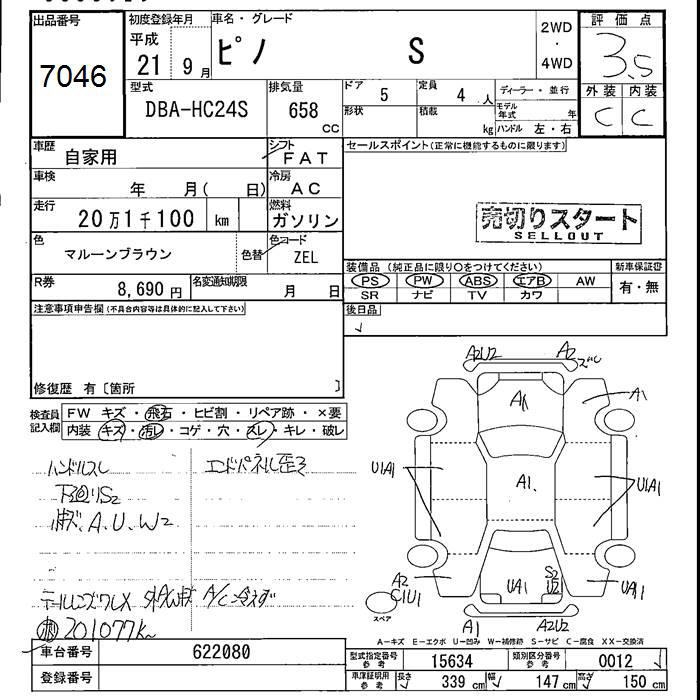 出品番号
7046
初度登録年月
平成
21 9 月
車名・グレード
ピノ S
2WD
・
4WD
評価点
3.5
外装 内装
C C
型式
DBA-HC24S
排気量
658
cc
ドア
5
定員
4 人
ディーラー・並行
形状
積載
kg
モデル
年式 年
ハンドル 左・右
車歴
自家用
シフト
FAT
車検
年 月( 日)
冷房
AC
走行
20万1千100 km
燃料
ガソリン
色
マルーンブラウン
色替
色コード
ZEL
R券
8,690 円
名変通知期限
月 日
セールスポイント(正常に機能するものに限ります)
売切りスタート
SELLOUT
装備品(純正品に限り○をつけてください)
新車保証書
PS PW ABS エアB AW
SR ナビ TV カワ
有・無
後日品
注意事項申告欄(不具合内容等は具体的に記入して下さい)
修復歴 有〔箇所 〕
検査員
記入欄
FW キズ・飛石・ヒビ割・リペア跡・×要
内装 キズ・汚れ・コゲ・穴・スレ・キレ・破レ
ハンドルスレ
エンドパネル歪ミ
下廻りS2
A.U.W2
A/C冷えず
201077km
A2U2
A2
ズレ
A1
A1
U1A1
A1.
U1A1
A2
C1U1
UA1
S2
U2
UA1
スペア
A1
A2U2
A－キズ E－エクボ U－凹み W－補修跡 S－サビ C－腐食 XX－交換済
車台番号
622080
登録番号
型式指定番号
参考
15634
類別区分番号
参考
0012
車庫証明用
参考
長さ
339 cm
幅
147 cm
高さ
150 cm